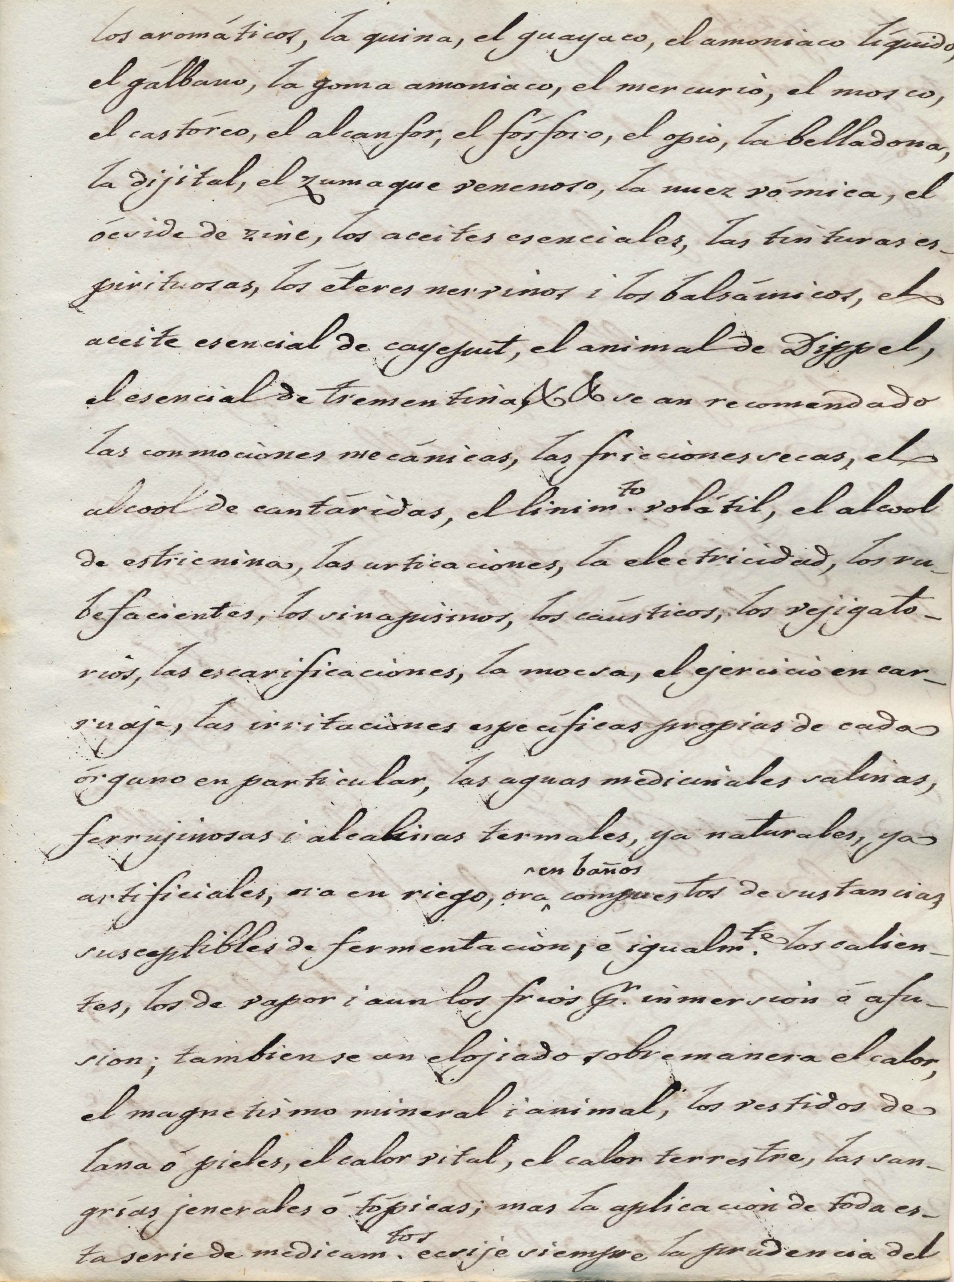 los aromáticos, la quina, el guayaco, el amoniaco líquido,
el gálbano, la goma amoniaco, el mercurio, el mosco,
el castóreo, el alcanfor, el fósforo, el opio, la belladona,
la dijital, el zumaque venenoso, la nuez vómica, el
ócside de zinc, los aceites esenciales, las tinturas es-
pirituosas, los éteres nervinos i los balsámicos, el
aceite esencial de cayeput, el animal de Dippel,
el esencial de trementina, & & se an recomendado
las conmociones mecánicas, las fricciones secas, el
alcool de cantáridas, el linim.to volátil, el alcool
de estricnina, las urticaciones, la electricidad, los ru-
befacientes, los sinapismos, los caústicos, los vejigato-
rios, las escarificaciones, la mocsa, el ejercicio en car-
ruaje, las irritaciones específicas propias de cada
órgano en particular, las aguas medicinales salinas,
ferrujinosas i alcalinas termales, ya naturales, ya
en baños
artificiales, ora en riego, ora compuestos de sustancias
susceptibles de fermentacion; é igualm.te los calien-
tes, los de vapor i aun los frios pr. inmersion ó afu-
sion; tambien se an elojiado sobremanera el calor,
el magnetismo mineral i animal, los vestidos de
lana ó pieles, el calor vital, el calor terrestre, las san-
grías jenerales ó tópicas; mas la aplicacion de toda es-
ta serie de medicam.tos ecsije siempre la prudencia del